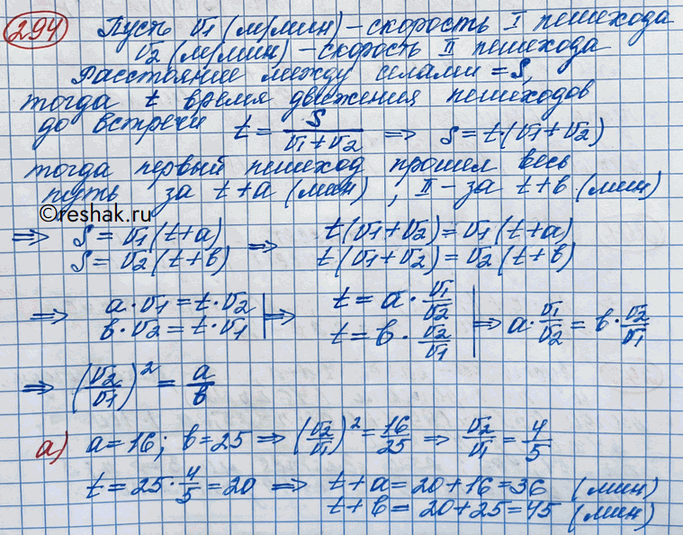 294 Пусть v1 (м/мин) – скорость I пешехода
v2 (м/мин) – скорость II пешехода
Расстояние между селами = S,
тогда t время движения пешеходов
до встречи t = S/(v1+v2) ⇒ S = t·(v1+v2)
тогда первый пешеход прошел весь
путь за t+a (мин), II – за t+b (мин)
©reshak.ru
⇒ S = v1(t+a) ⇒ t(v1+v2) = v1(t+a)
S = v2(t+b) t(v1+v2) = v2(t+b)
⇒ a·v1 = t·v2 | ⇒ t = a·v1/v2 | ⇒ a·v1/v2 = b·v2/v1
b·v2 = t·v1 | t = b·v2/v1 |
⇒ (v2/v1)² = a/b
а) a=16; b=25 ⇒ (v2/v1)² = 16/25 ⇒ v2/v1 = 4/5
t = 25·4/5 = 20 ⇒ t+a = 20+16 = 36 (мин)
t+b = 20+25 = 45 (мин)